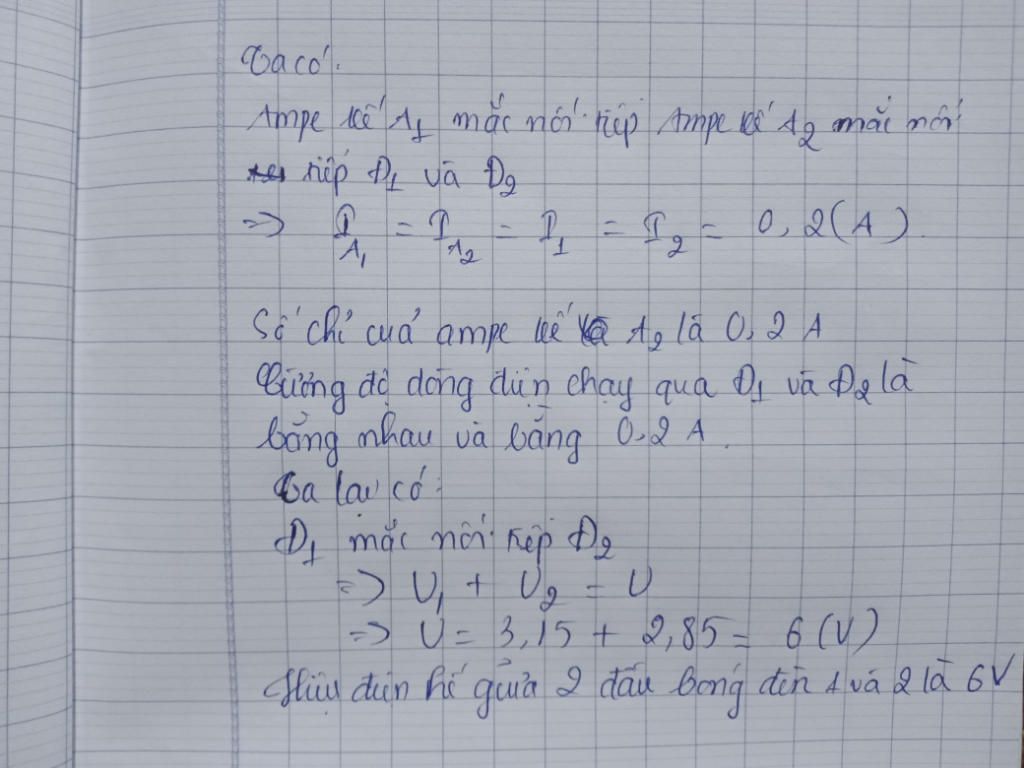 Ta có:
Ampe kế A₁ mắc nối tiếp Ampe kế A₂ mắc nối
tiếp Đ₁ và Đ₂
=> I_A₁ = I_A₂ = I₁ = I₂ = 0,2(A).
Số chỉ của ampe kế A₂ là 0,2 A
Cường độ dòng điện chạy qua Đ₁ và Đ₂ là
bằng nhau và bằng 0,2 A.
Ta lại có:
Đ₁ mắc nối tiếp Đ₂
=> U₁ + U₂ = U
=> U = 3,15 + 2,85 = 6 (V)
Hiệu điện thế giữa 2 đầu bóng đèn 1 và 2 là 6V